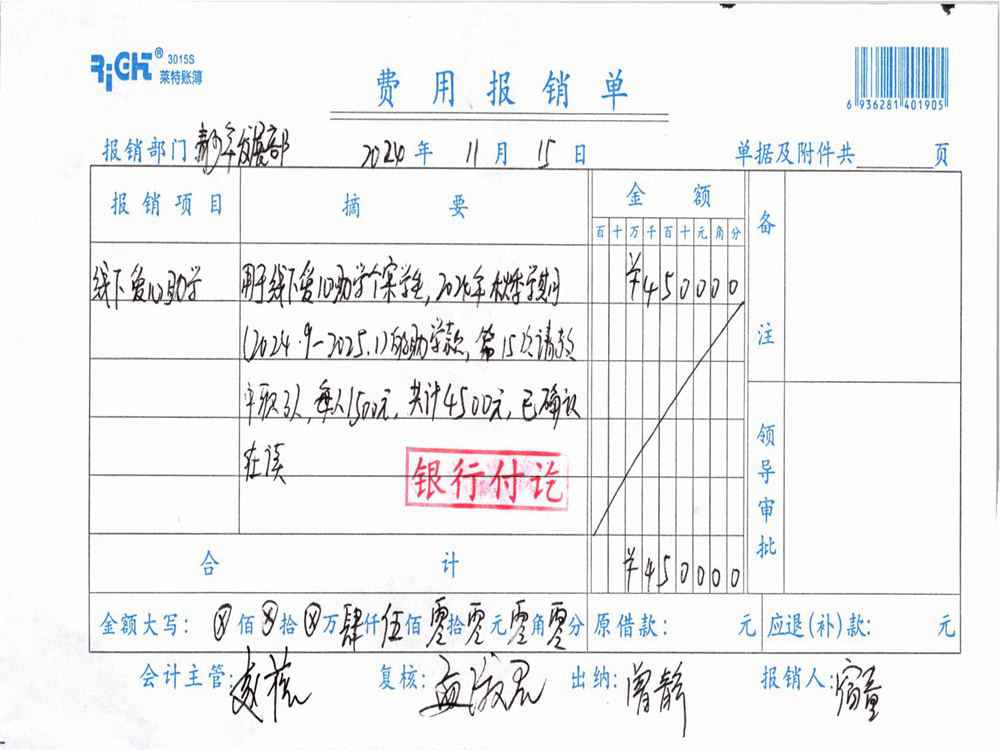 RiGHT® 3015S
莱特账簿
费用报销单
6 936281 401905
报销部门 青少年发展部 2024年11月15日 单据及附件共 页
报销项目 摘要 金额 备注
百十万千百十元角分
线下爱心助学 用于线下爱心助学个案学生,2024年秋季学期 ¥450000
(2024.9-2025.1)的助学款,第15次请款
3人,每人1500元,共计4500元,已确认
在读
银行付讫
领导审批
合计 ¥450000
金额大写:ⓧ佰ⓧ拾ⓧ万肆仟伍佰零拾零元零角零分 原借款: 元 应退(补)款: 元
会计主管: 复核: 出纳:曾静 报销人: